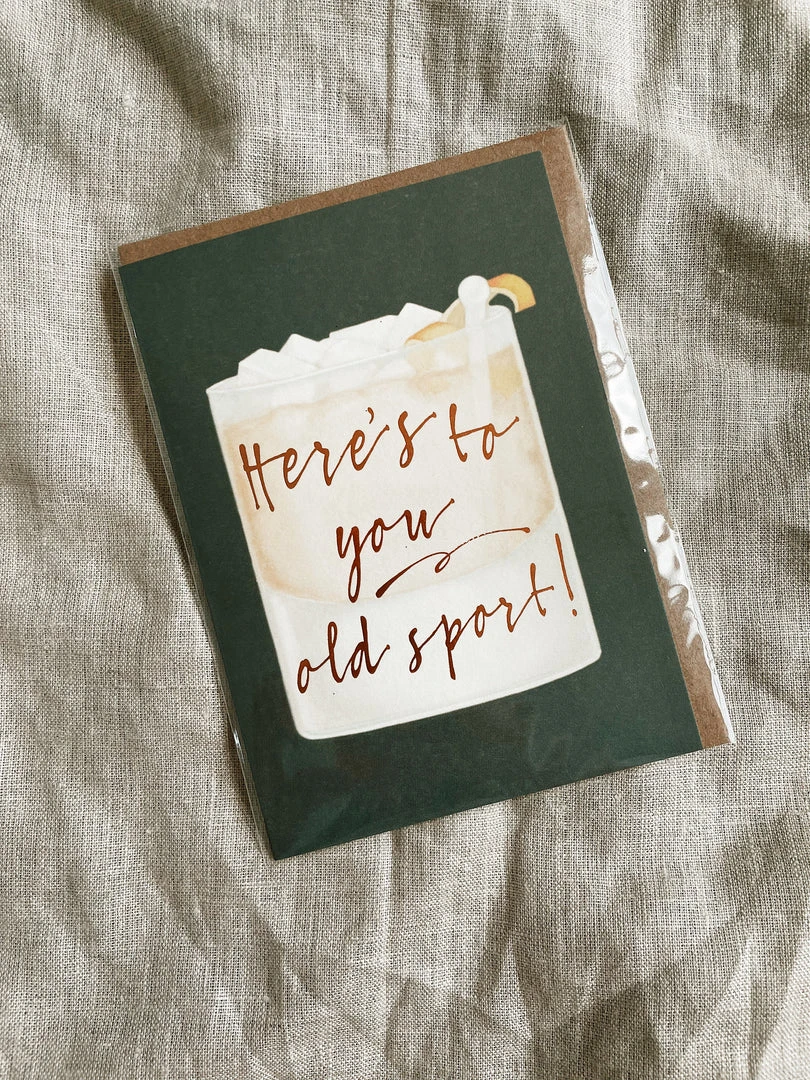 Here's to
you
old sport!